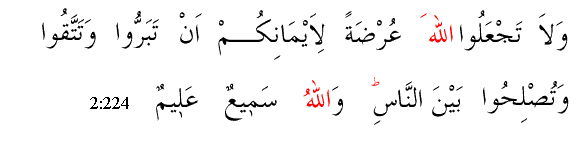 وَلاَ تَجْعَلُوا اللهَ عُرْضَةً لِاَيْمَانِكُـــمْ اَنْ تَبَرُّوا وَتَتَّقُوا
وَتُصْلِحُوا بَيْنَ النَّاسِۜ وَاللهُ سَمٖيعٌ عَلٖيمٌ 2:224